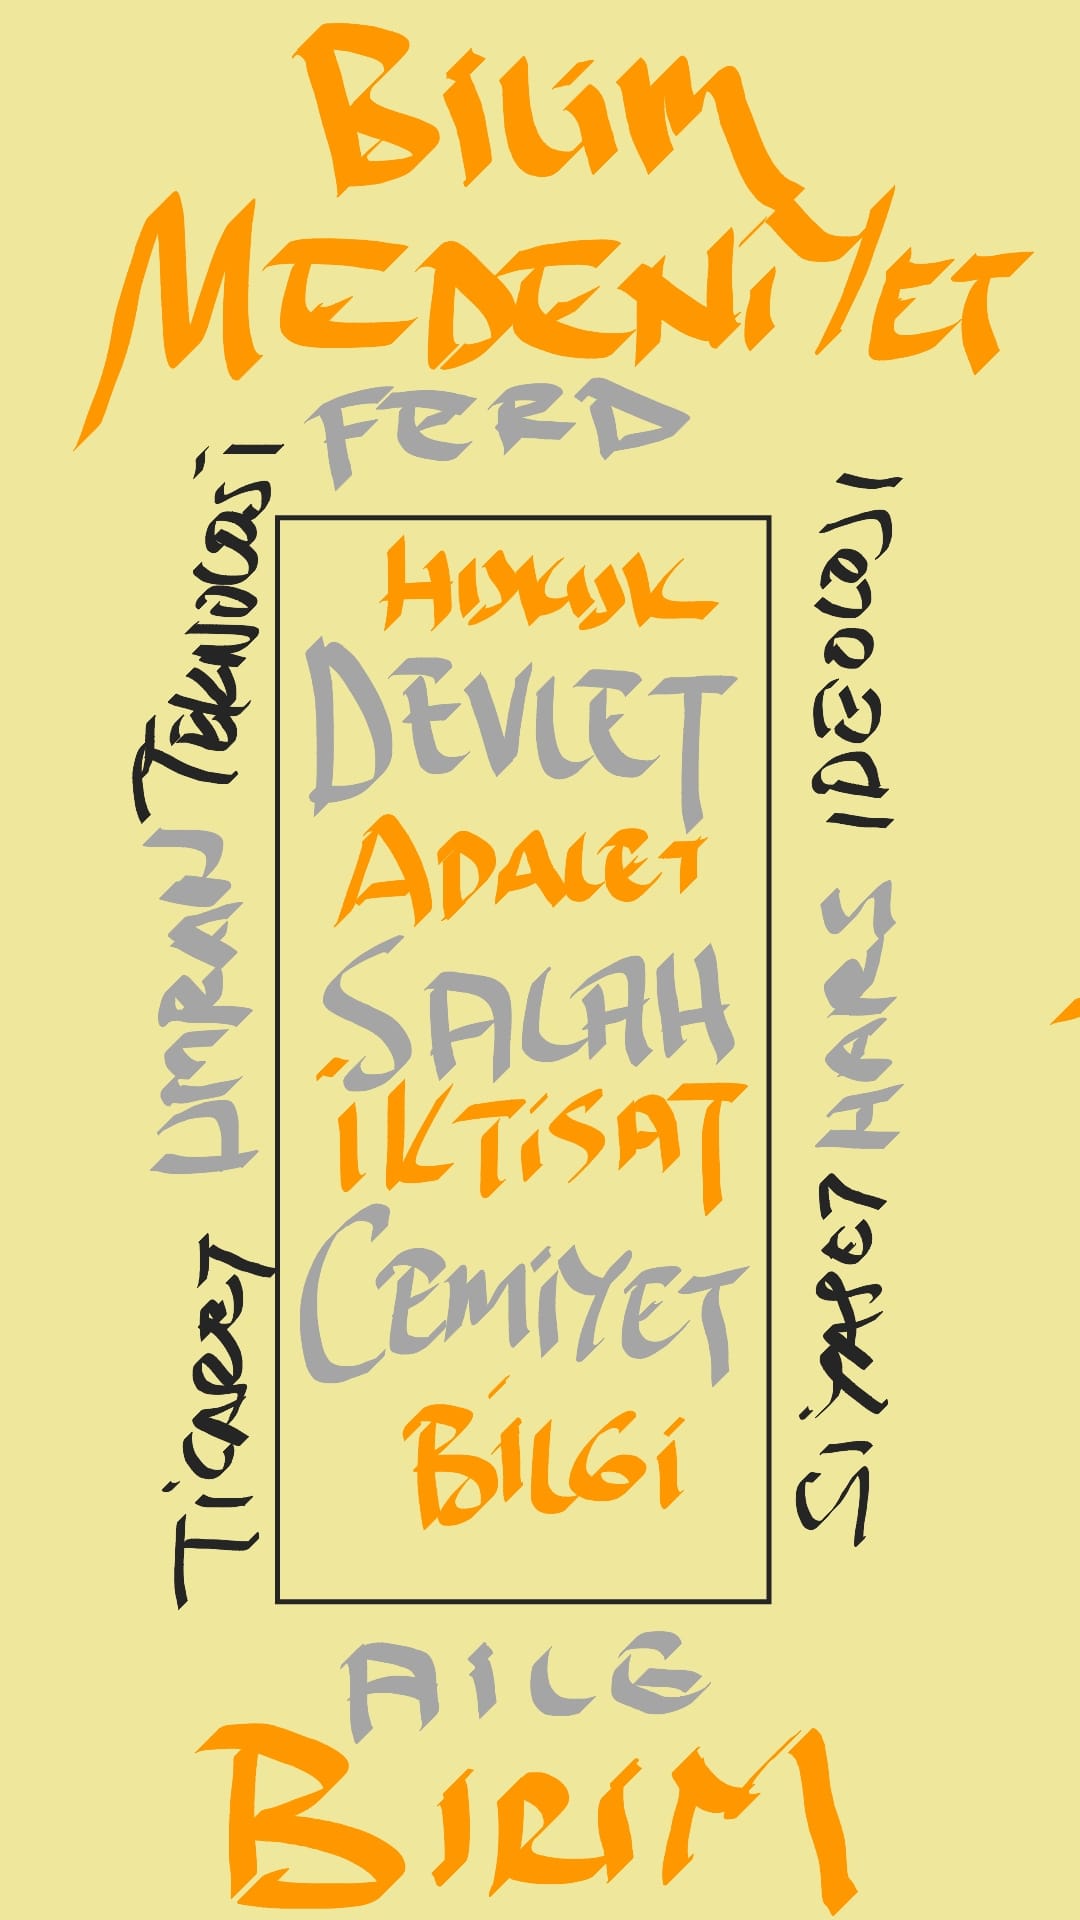 Bilim
MEDENİYET
FERD
TEKNOLOJİ
UMRAN
TİCARET
HUKUK
DEVLET
ADALET
SALAH
İKTİSAT
CEMİYET
BİLGİ
IDEOLOJI
HARS
SİYASET
AİLE
BIRIM